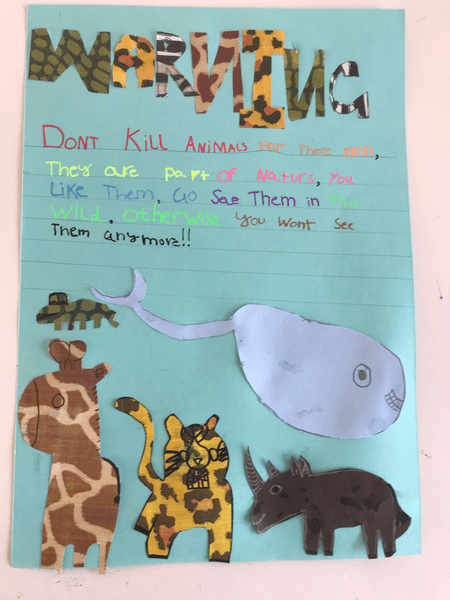 WARNING
DONT KILL ANIMALS FOR There skin,
They are part of Naturs, you
Like Them, Go See Them in The
Wild. otherwise you wont see
Them anymore!!